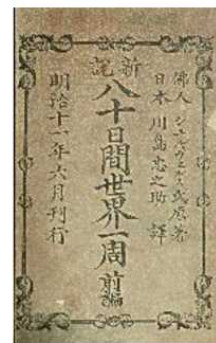 佛人 ジユールスベルネ氏原著
日本 川島忠之助 譯
新説
八十日間世界一周 前編
明治十一年六月刊行